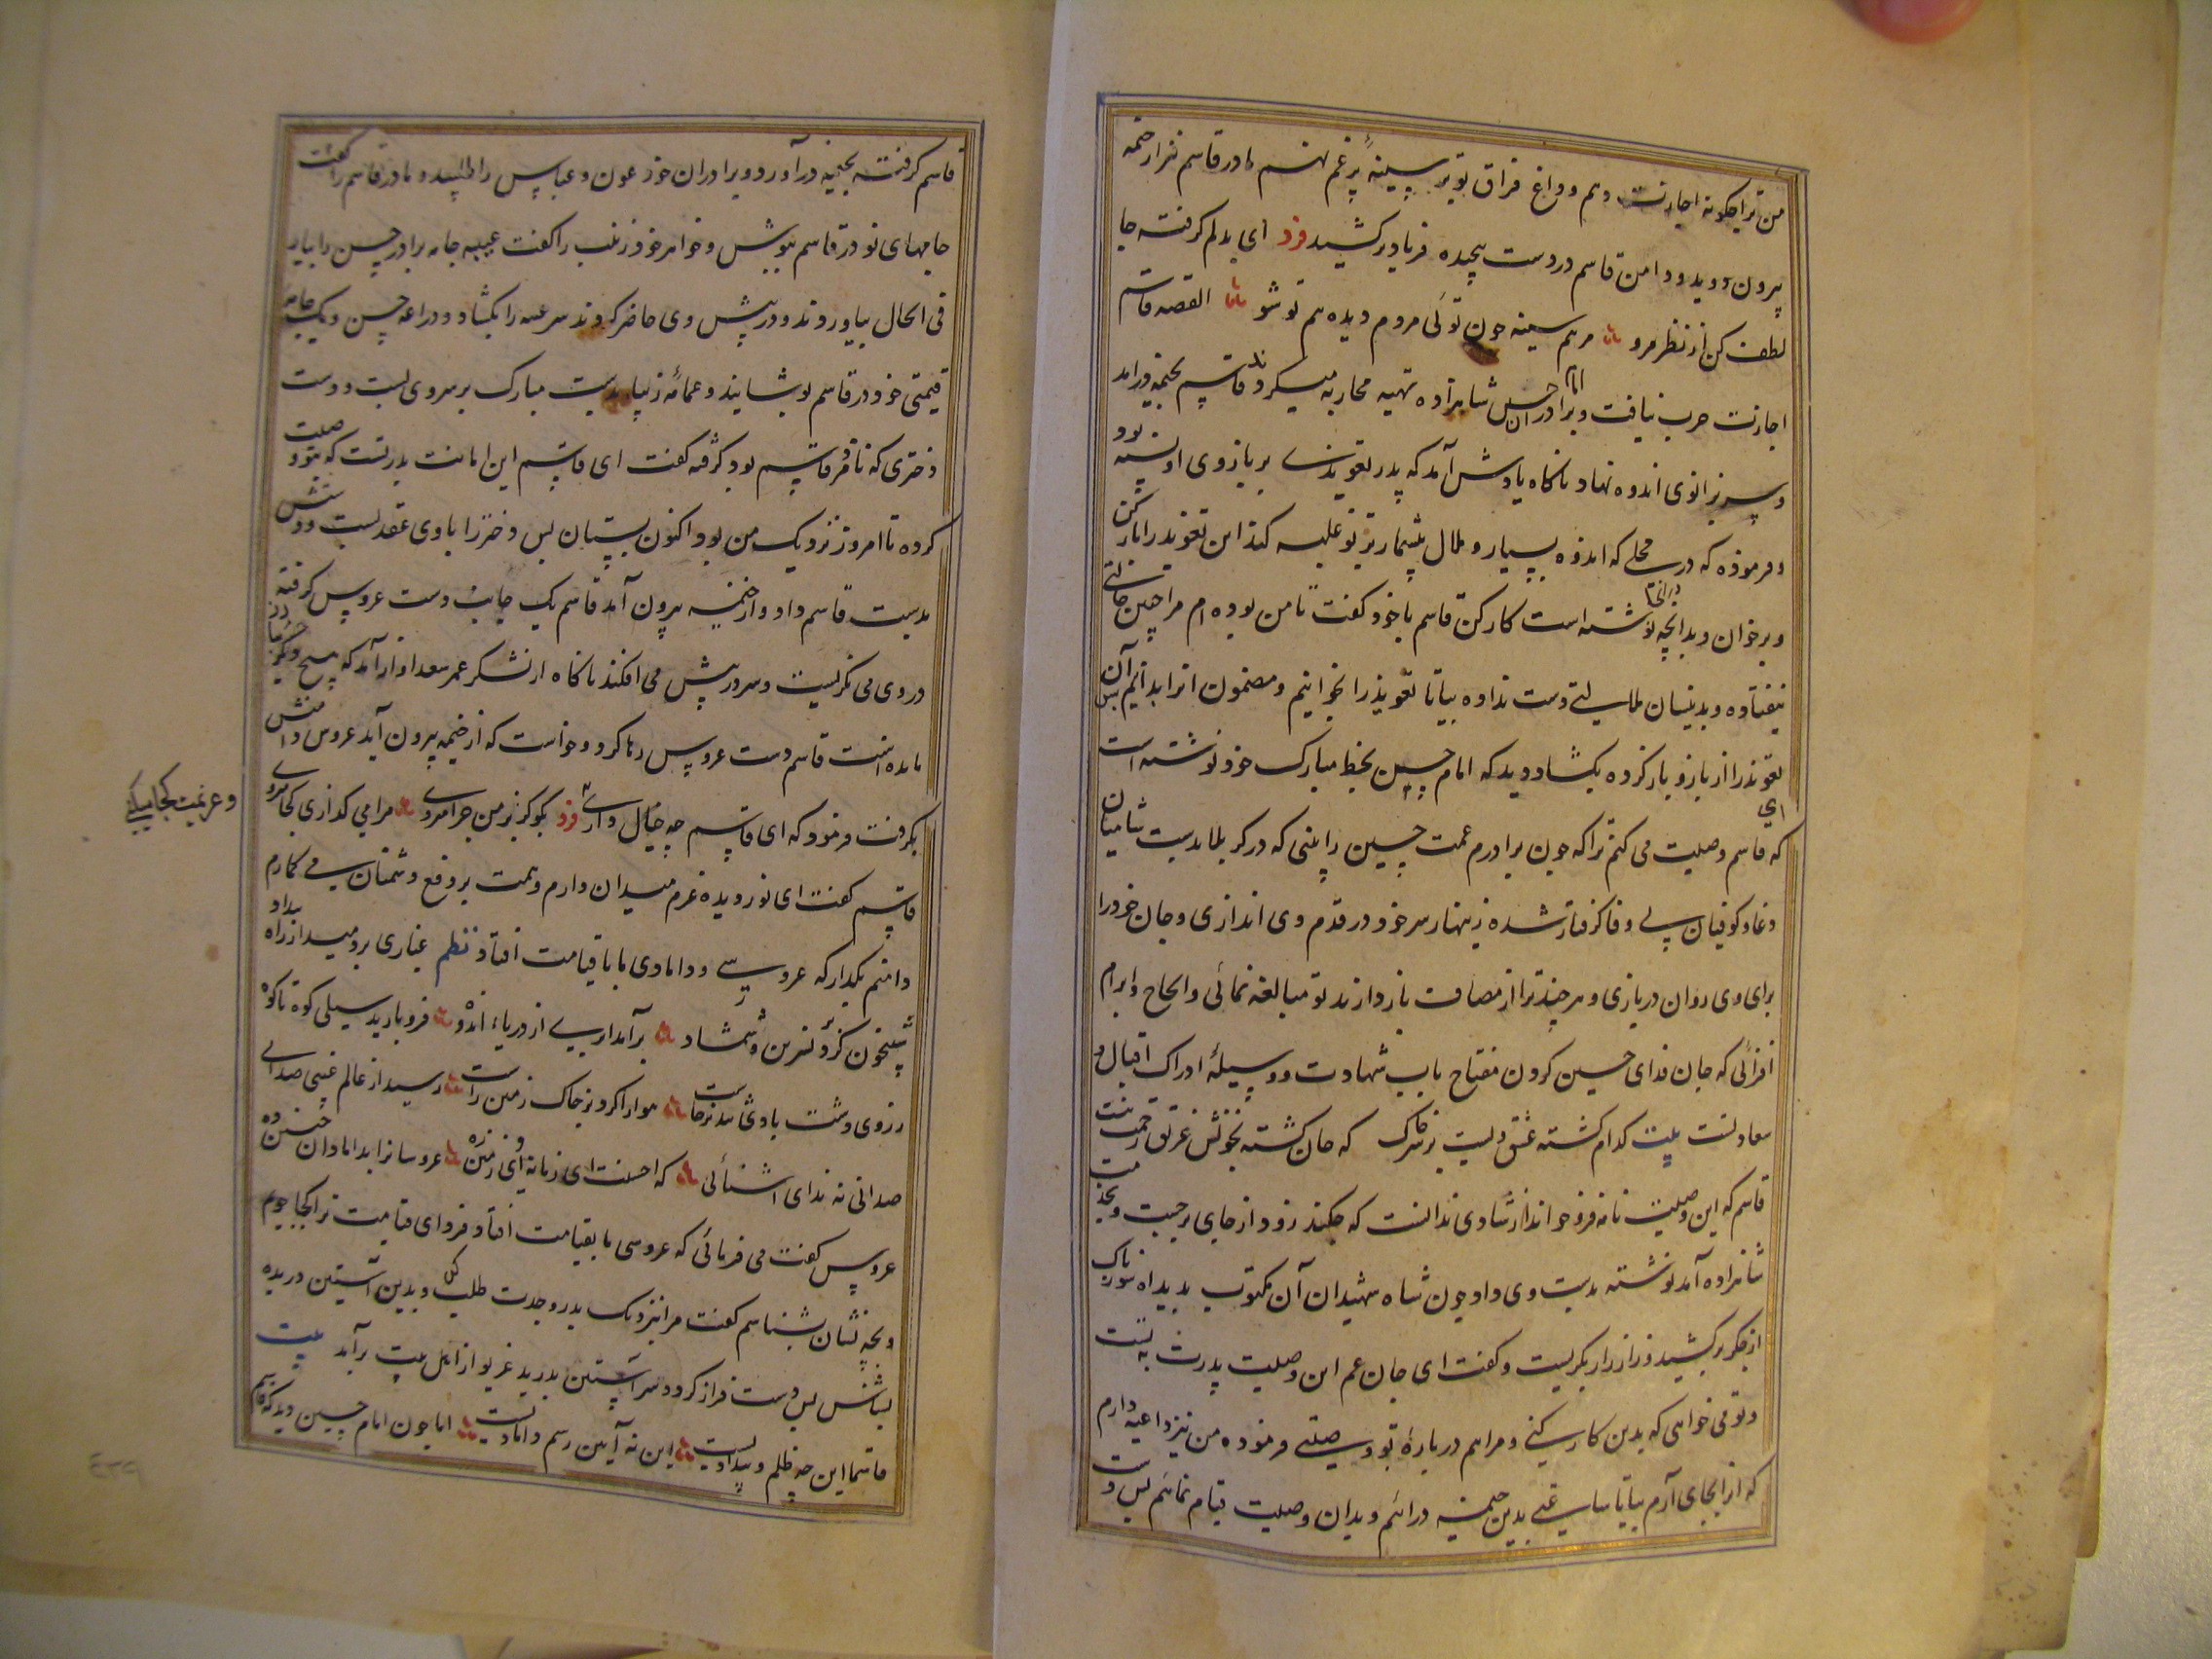 من ترا چکونه اجازت دهم و داغ فراق تو بر سینهٔ پر غم نهم مادر قاسم نیز از خیمه
بیرون دوید و دامن قاسم در دست پیچیده فریاد برکشید فرد ای بدلم کرفته جا
لطف کن از نظر مرو مرهم سینه چون توئی مردم دیده هم تو شو القصه قاسم
اجازت حرب نیافت و برادران امام حسن شاهزاده تهیه محاربه میکردند قاسم بخیمه درآمد
و سر بزانوی اندوه نهاد ناکاه یادش آمد که پدر تعویذی بر بازوی او بسته بود
و فرموده که در محلی که اندوه بسیار و ملال بیشمار بر تو غلبه کند این تعویذ را باز کن
و برخوان و بدانچه در آنجا نوشته است کار کن قاسم با خود کفت تا من بوده ام مرا چنین حالتی
نیفتاده و بدینسان ملالتی دست نداده بیا تا تعویذ را بخوانیم و مضمون آنرا بدانیم پس آن
تعویذ را از بازو باز کرده بکشاد و دید که امام حسن بخط مبارک خود نوشته است
که ای قاسم وصیت می کنم ترا که چون برادرم عمت حسین را بینی که در کربلا بدست شامیان
دغا و کوفیان بی وفا کرفتار شده زینهار سر خود در قدم وی اندازی و جان خود را
برای وی روان دربازی و هر چند ترا از مصاف باز دارند تو مبالغه نمائی و الحاح و ابرام
افزائی که جان فدای حسین کردن مفتاح باب شهادت و وسیلهٔ ادراک اقبال و
سعادتست بیت کدام کشته عشق ویست بر سر خاک که جان کشته بخونش غریق رحمت نیست
قاسم که این وصیت نامه فرو خواند از شادی ندانست که چکند زود از جای برجست و بخدمت
شاهزاده آمد نوشته بدست وی داد چون شاه شهیدان آن مکتوب بدید آه سوزناک
از جکر برکشید و زار زار بکریست و کفت ای جان عم این وصیت پدرت به تست
و تو می خواهی که بدین کار کنی و مرا هم دربارهٔ تو وصیتی فرموده من نیز داعیه دارم
که آنرا بجای آرم بیا تا ساعتی بدین خیمه درائیم و بدان وصیت قیام نمائیم پس دست
قاسم کرفته بخیمه درآورد و برادران خود عون و عباس را طلبید و مادر قاسم را کفت
جامهای نو در قاسم بپوش و خواهر خود زینب را کفت عیبه جامه برادرم حسن را بیار
فی الحال بیاوردند و در پیش وی حاضر کردند سر عیبه را بکشاد و دراعه حسن و یک جامه
قیمتی خود در قاسم پوشانید و عمامهٔ زیبا بدست مبارک بر سر وی بست و دست
دختری که نامزد قاسم بود کرفته کفت ای قاسم این امانت پدرتست که بتو وصیت
کرده تا امروز نزدیک من بود اکنون بستان پس دختر را با وی عقد بست و دستش
بدست قاسم داد و از خیمه بیرون آمد قاسم یک جانب دست عروس کرفته
در وی می نکریست و سر در پیش می افکند ناکاه از لشکر عمر سعد آواز آمد که هیچ مبارز دیکر
مانده است قاسم دست عروس رها کرد و خواست که از خیمه بیرون آید عروس دامنش
بکرفت فرمود که ای قاسم چه خیال داری فرد بکو کز بر من چرا میروی مرا می کذاری کجا میروی
و عزیمت کجا میکنی
قاسم کفت ای نور دیده عزم میدان دارم و همت بر دفع دشمنان می کمارم
دامنم بکذار که عروسی و دامادی ما با قیامت افتاد نظم غباری بردمید از راه بیداد
شبیخون کرد بر نسرین و شمشاد برآمد ابری از دریاء اندوه فرو بارید سیلی کوه تا کوه
ز روی دشت بادی تند برخاست هوا را کرد بر خاک زمین راست رسید از عالم غیبی صدائی
صدائی نه ندای آشنائی که احسنت ای زمان و ای زمین زه عروسانرا بدامادان چنین ده
عروس کفت می فرمائی که عروسی ما بقیامت افتاد فردای قیامت ترا کجا جویم
و بچه نشان شناسم کفت مرا بنزدیک پدر و جدت طلب کن و بدین آستین دریده
بشناس پس دست فراز کرد و سر آستین بدرید غریو از اهل بیت برآمد بیت
قاسما این چه ظلم و بیدادیست این نه آیین رسم دامادیست اما چون امام حسین دید که قاسم